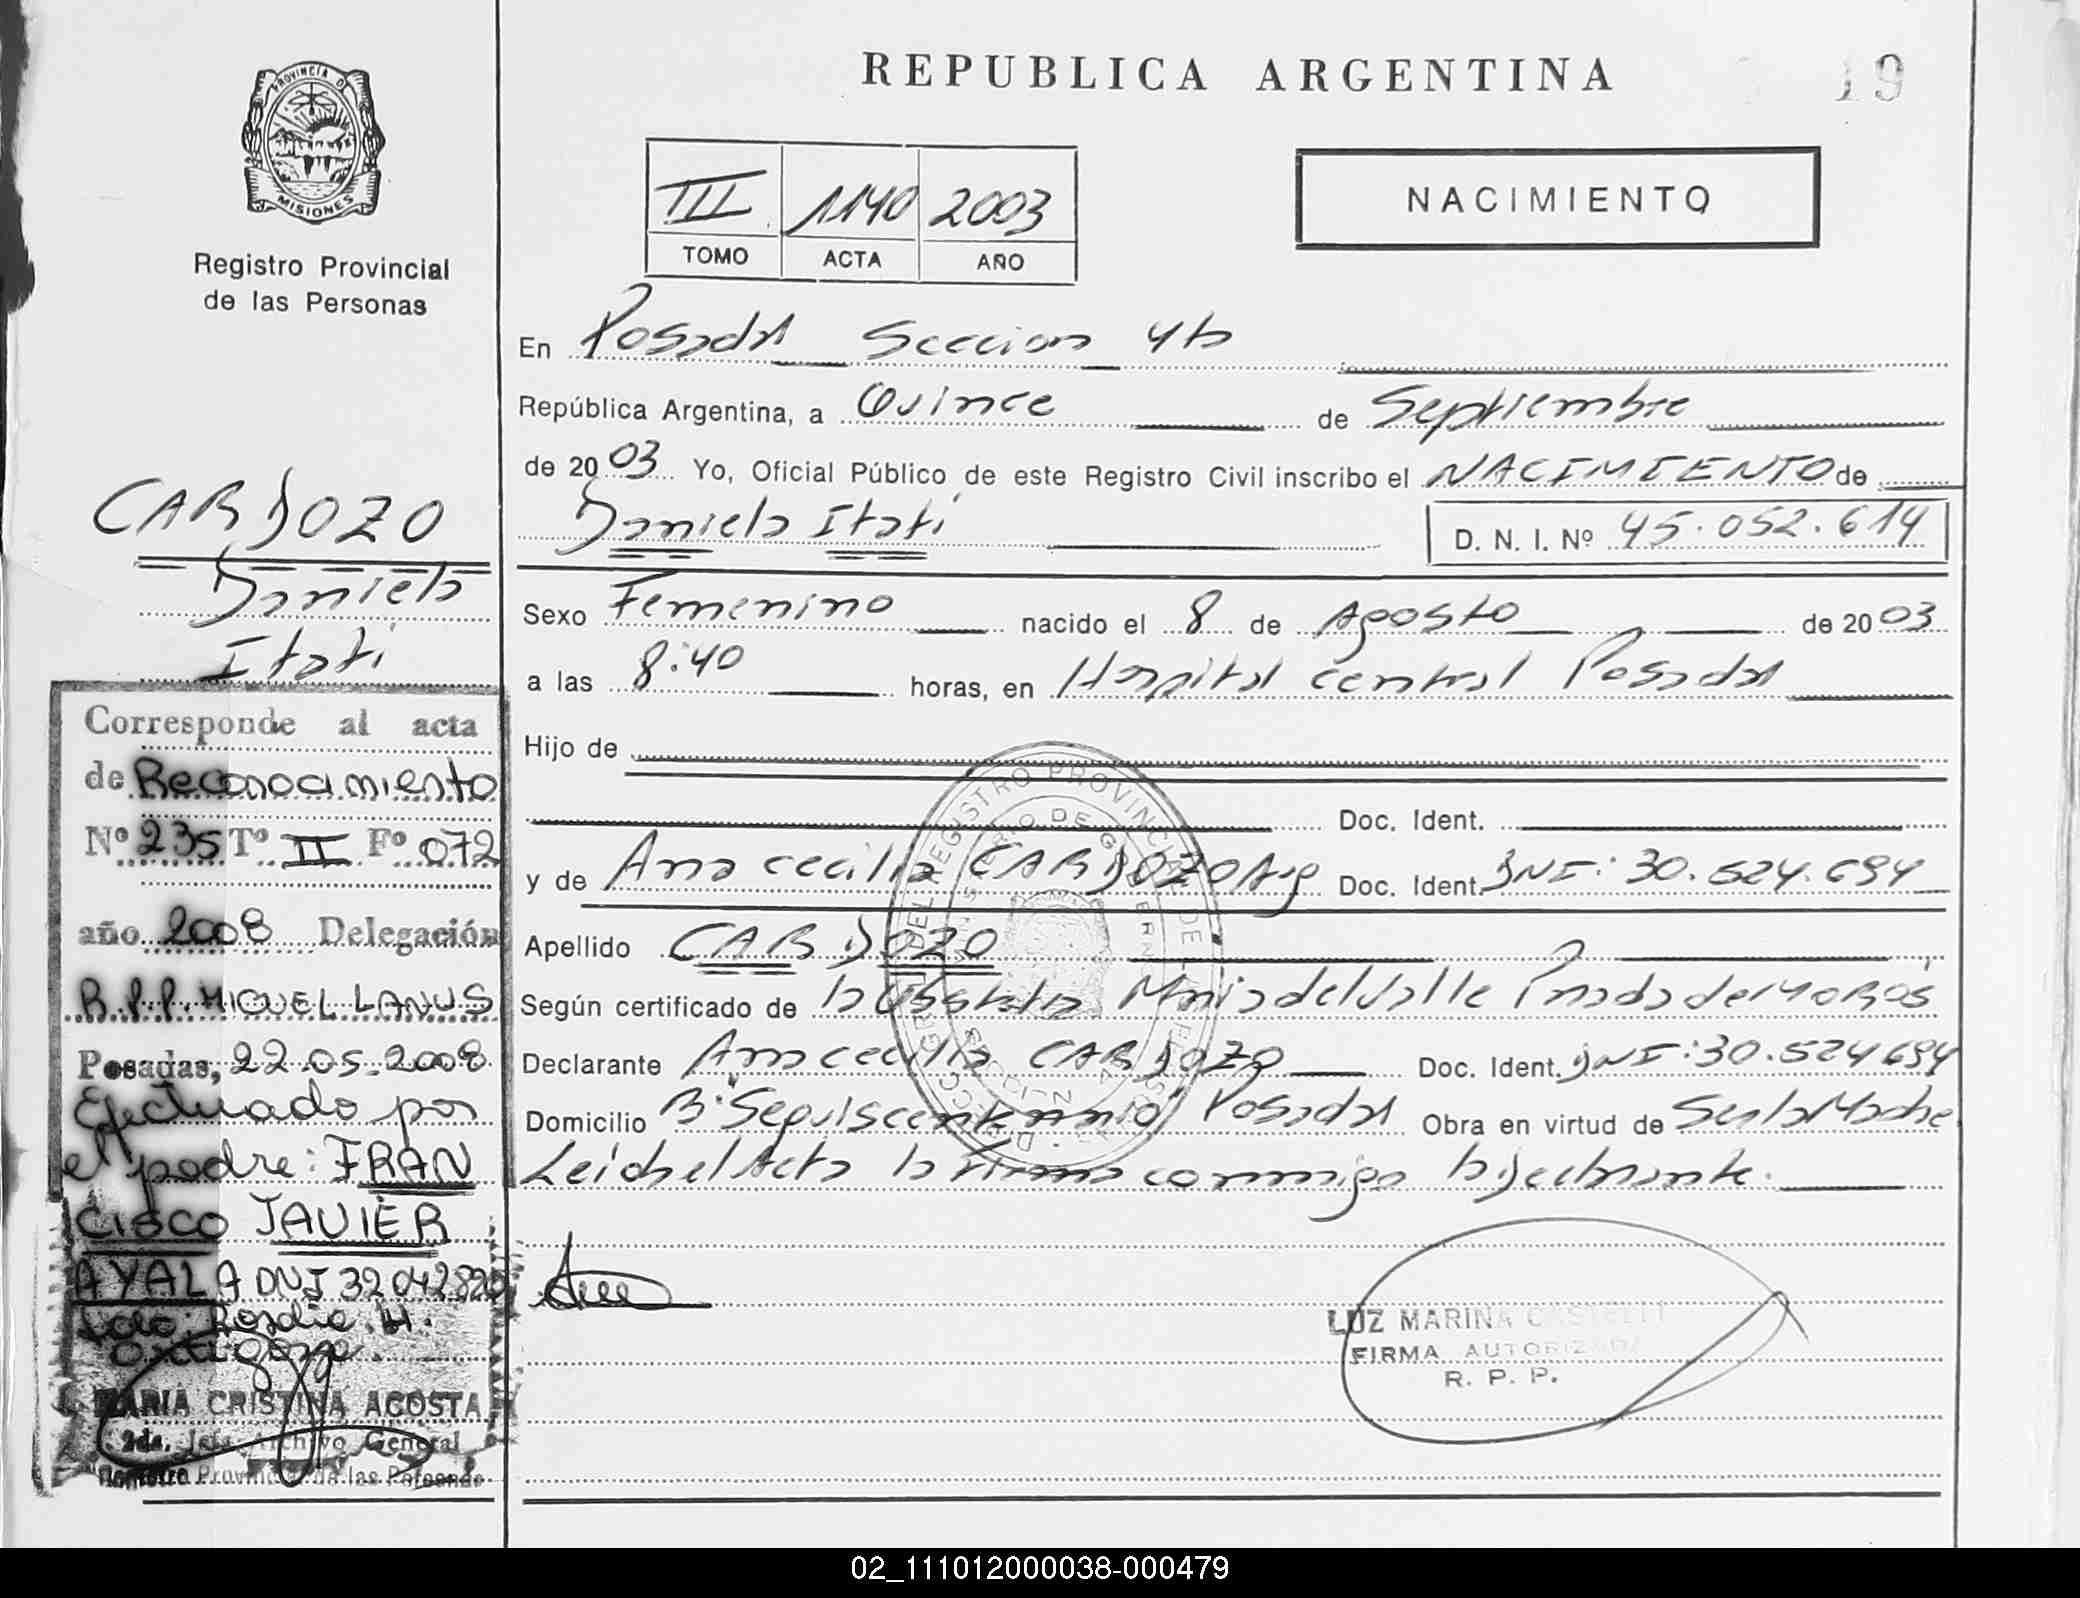 PROVINCIA DE
MISIONES
Registro Provincial
de las Personas
CARDOZO
Daniela
Itatí
Corresponde al acta
de Reconocimiento
Nº 235 Tº II Fº 072
año 2008 Delegación
R.P.P. MIGUEL LANUS
Posadas, 22.05.2008
Efectuado por
el padre: FRAN
CISCO JAVIER
AYALA DNI 32042820
Rosalia H.
MARIA CRISTINA ACOSTA
2da. Jefa Archivo General
Registro Provincial de las Personas
REPUBLICA ARGENTINA
19
III 1140 2003
TOMO ACTA AÑO
NACIMIENTO
En Posadas Seccion 4ta
República Argentina, a Quince de Septiembre
de 2003 Yo, Oficial Público de este Registro Civil inscribo el NACIMIENTO de
Daniela Itatí D. N. I. Nº 45.052.614
Sexo Femenino nacido el 8 de Agosto de 2003
a las 8:40 horas, en Hospital central Posadas
Hijo de
Doc. Ident.
y de Ana cecilia CARDOZO Arg Doc. Ident. DNI: 30.524.694
Apellido CARDOZO
Según certificado de la Obstetra Maria del Valle Prada de Moros
Declarante Ana cecilia CARDOZO Doc. Ident. DNI: 30.524694
Domicilio Bº Sesquicentenario Posadas Obra en virtud de Ser la Madre
Leida el Acta la firma conmigo la declarante.
LUZ MARINA CASTELLI
FIRMA AUTORIZADA
R. P. P.
02_111012000038-000479